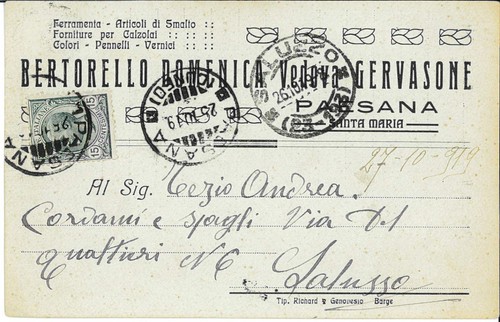 Ferramenta - Articoli di Smalto ::
Forniture per Calzolai :: :: :: ::
Colori - Pennelli - Vernici :: ::
BERTORELLO DOMENICA Vedova GERVASONE
PAESANA
SANTA MARIA
PAESANA (CUNEO)
SALUZZO
27-10-919
Al Sig. Andrea
Cordami e spagli Via
N 6 Saluzzo
Tip. Richard & Genovesio Barge